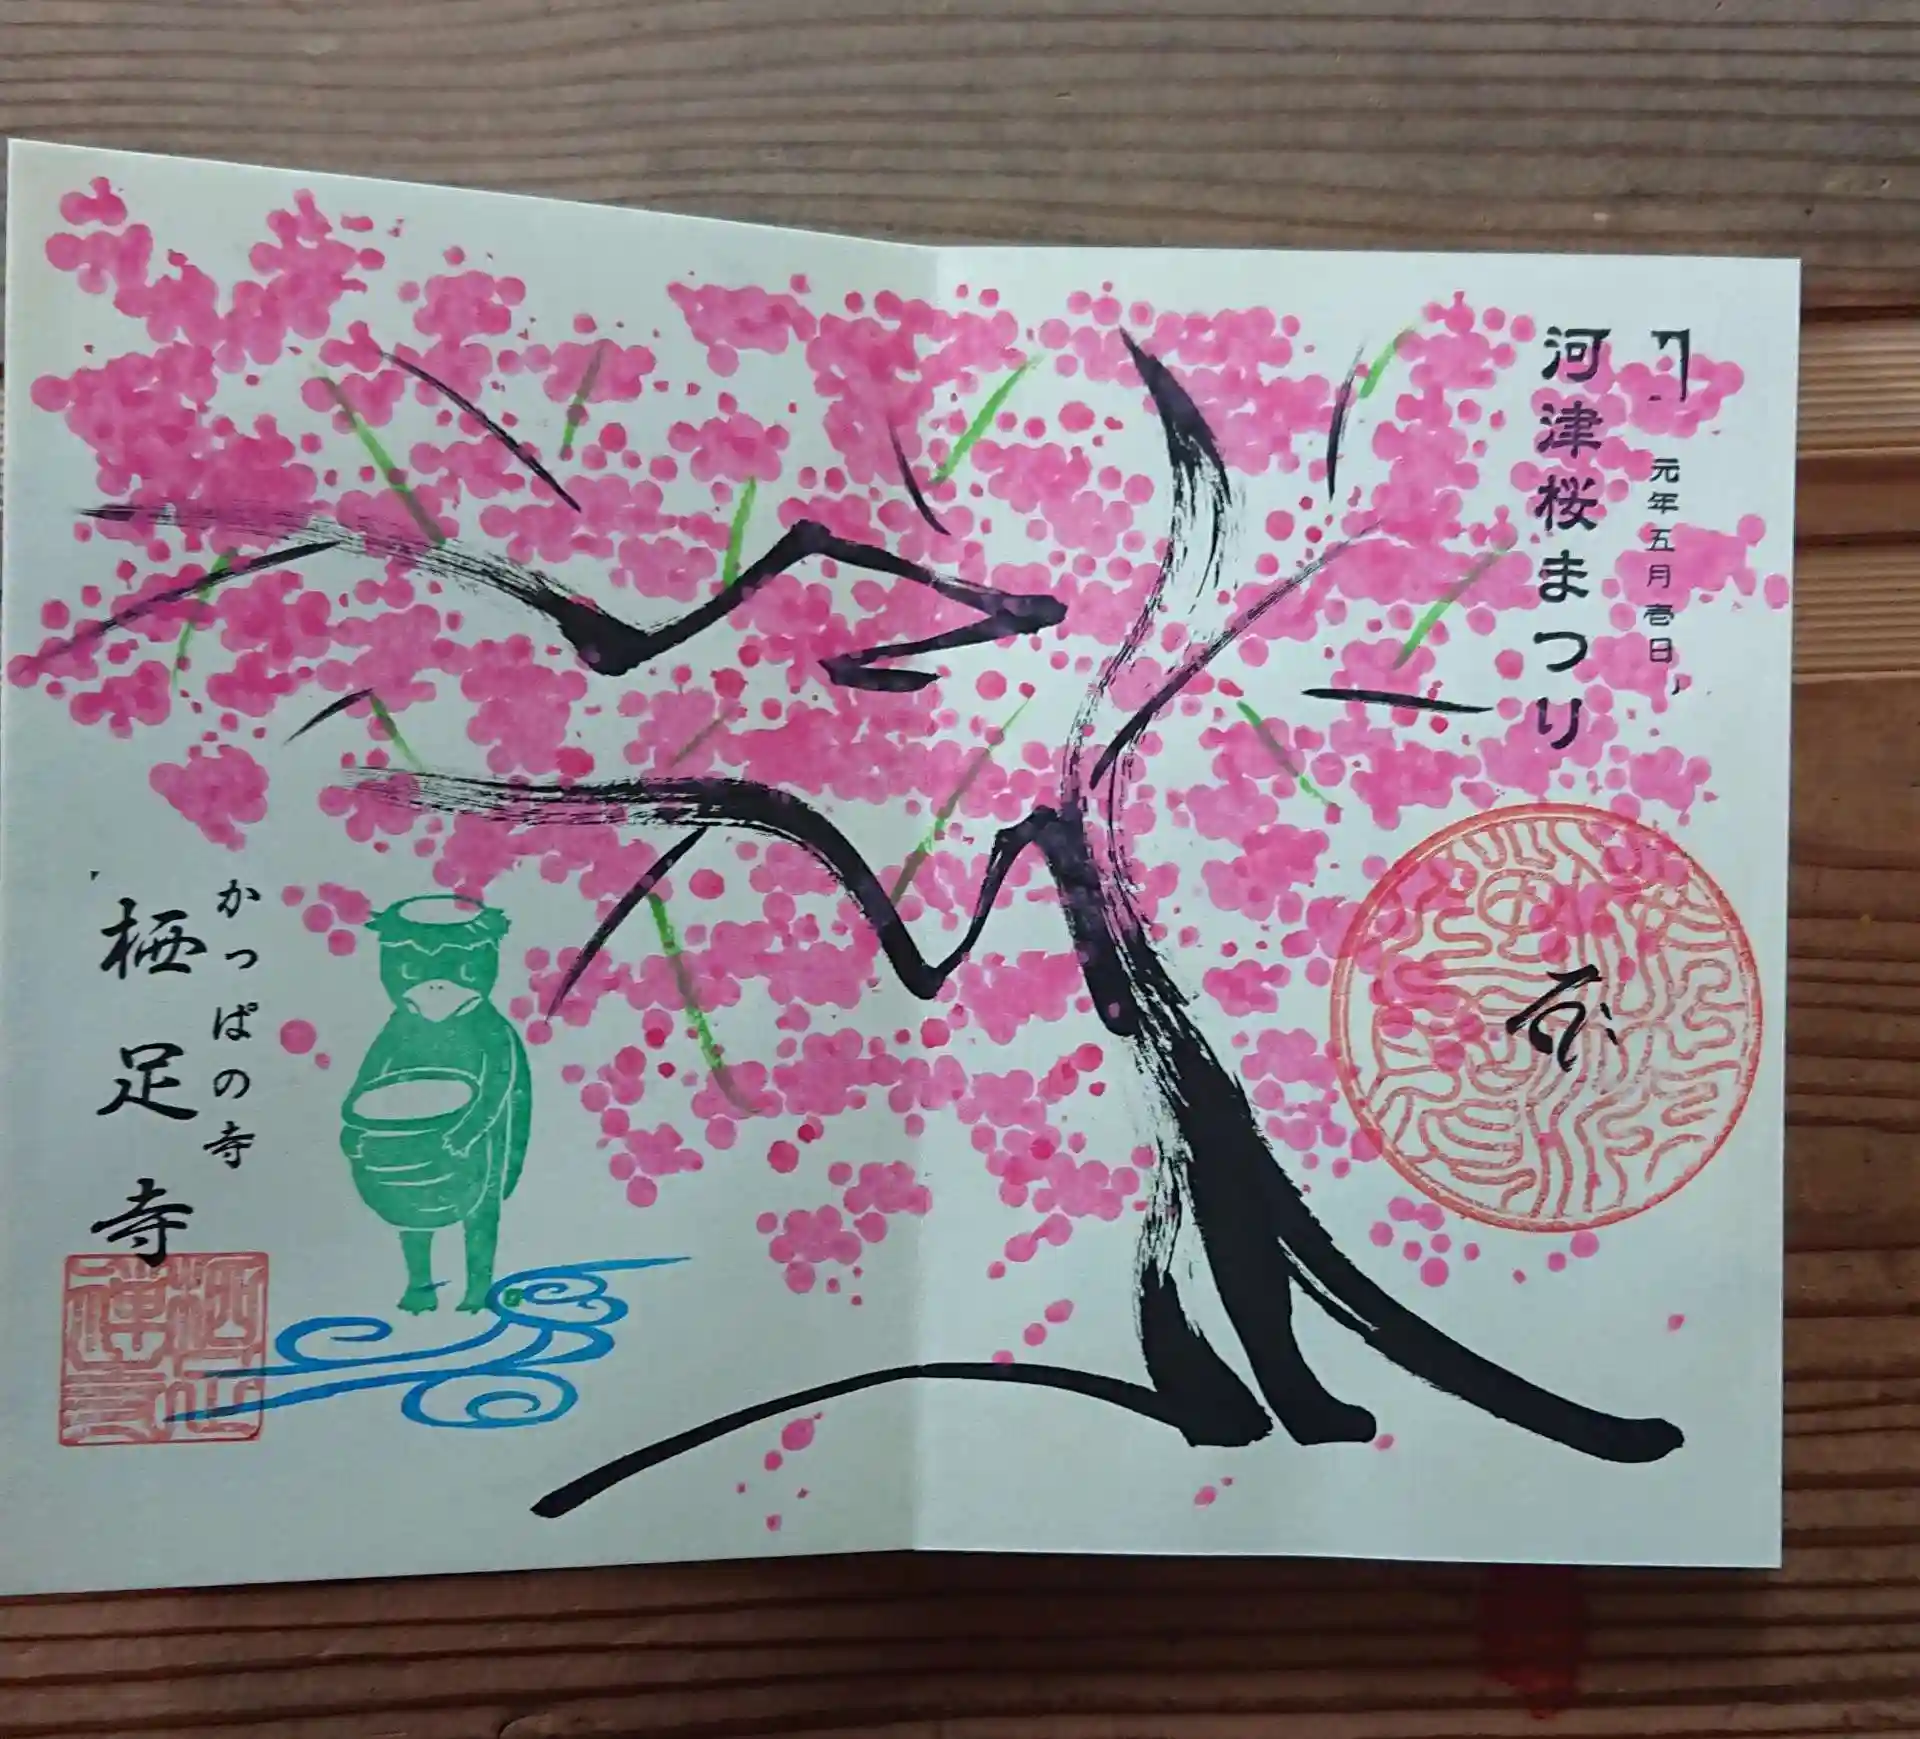 元年五月壱日
河津桜まつり
かっぱの寺
栖足寺